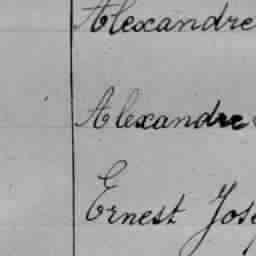 Alexandre
Alexandre
Ernest Jose